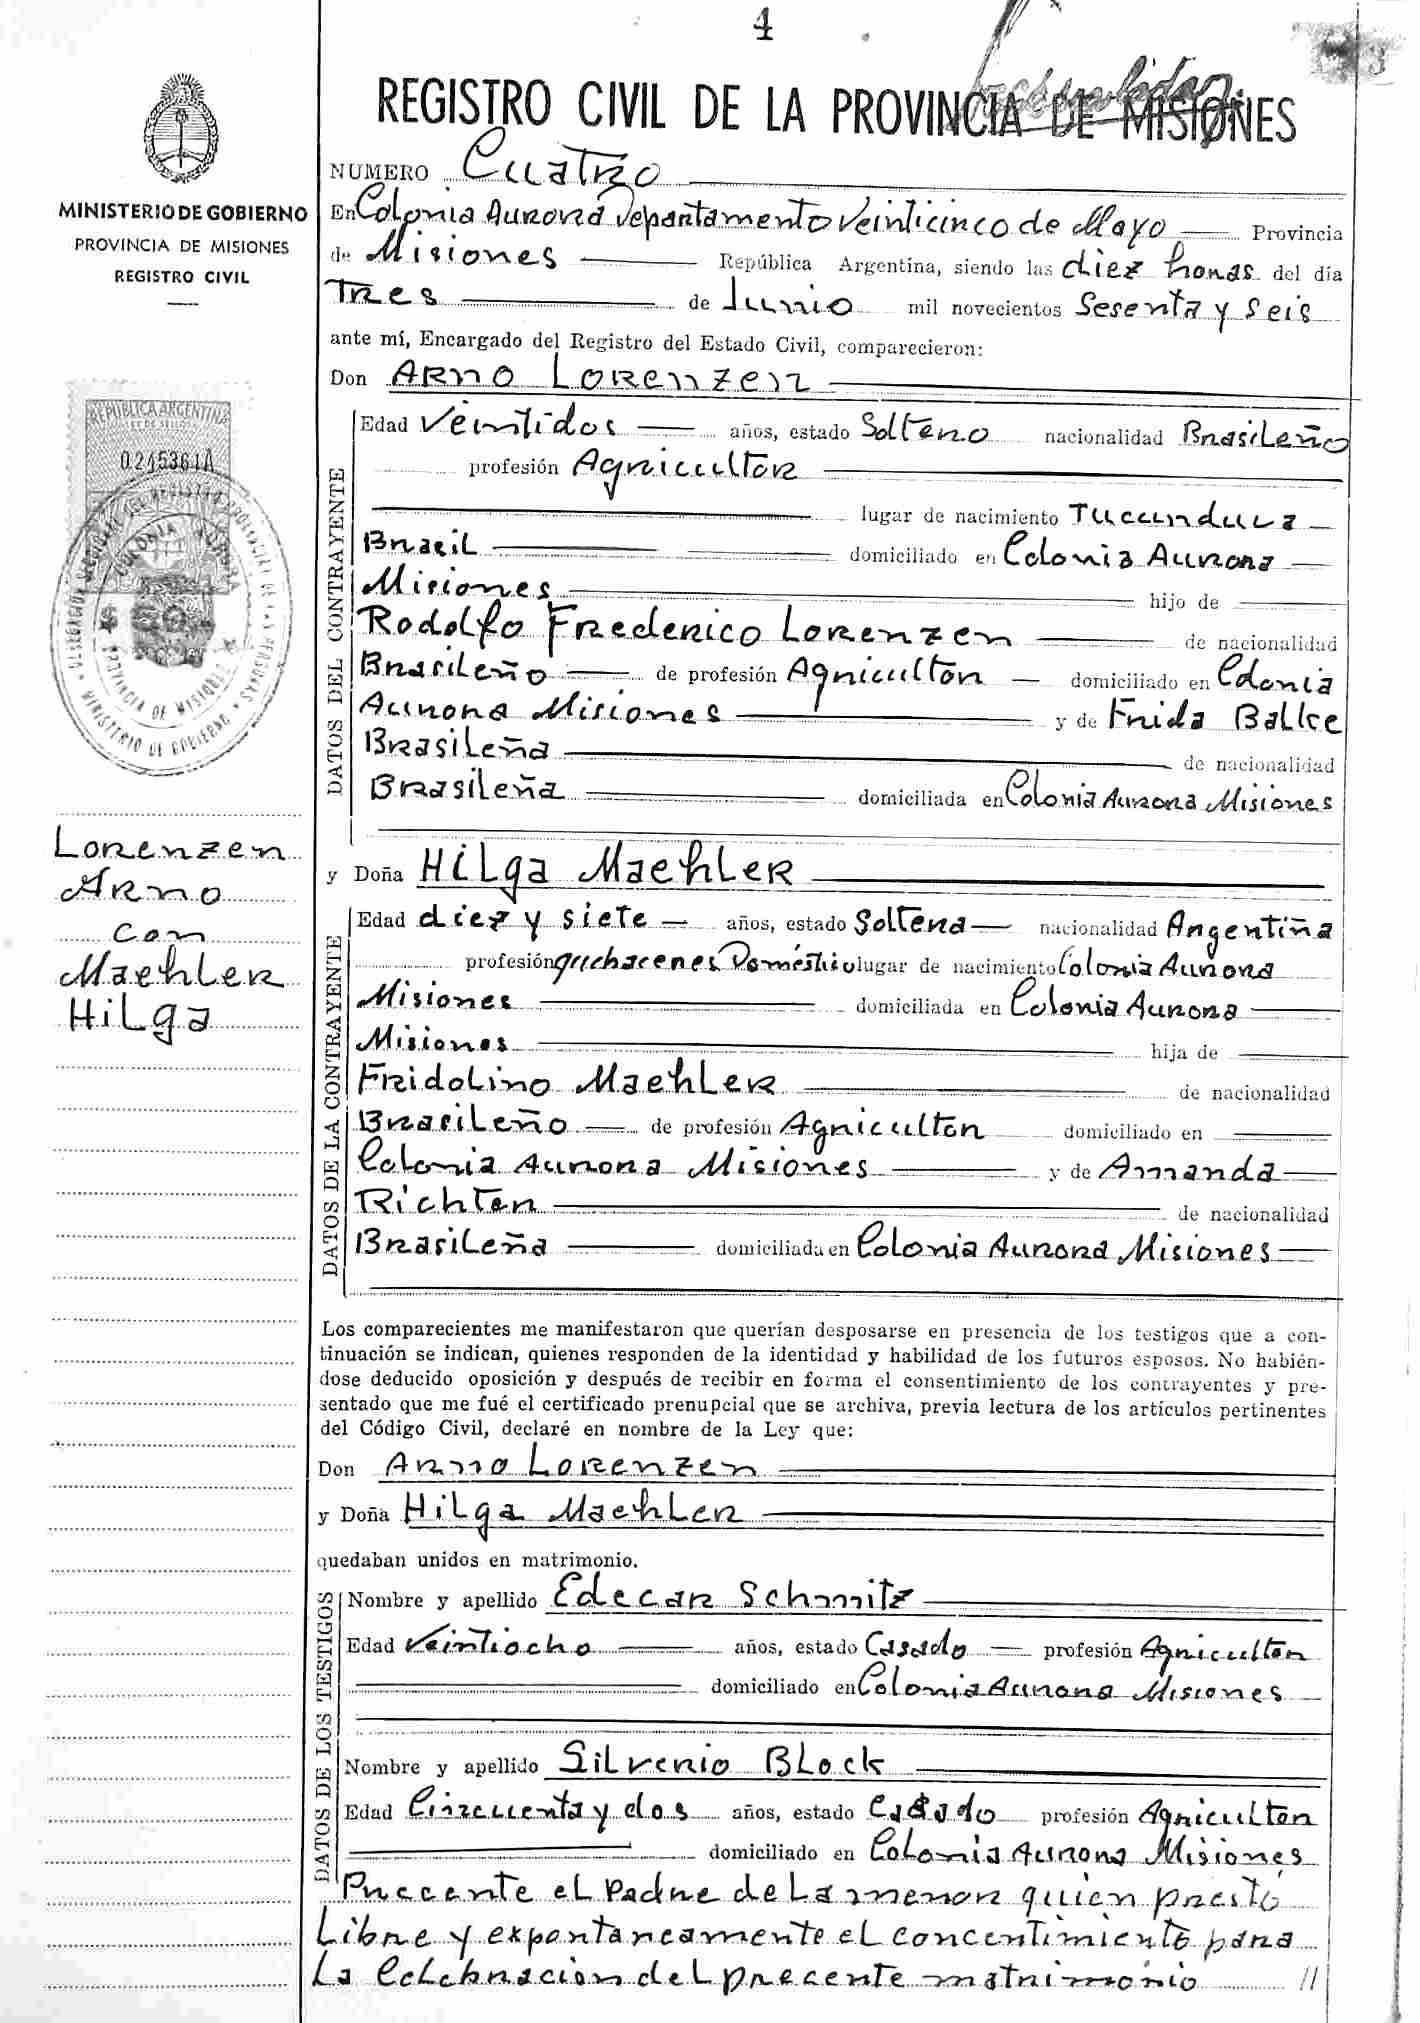 4
REGISTRO CIVIL DE LA PROVINCIA DE MISIONES
MINISTERIO DE GOBIERNO
PROVINCIA DE MISIONES
REGISTRO CIVIL
REPUBLICA ARGENTINA
LEY DE SELLOS
0245361A
COLONIA AURORA
PROVINCIA DE MISIONES
MINISTERIO DE GOBIERNO
Lorenzen
Arno
con
Maehler
Hilga
NUMERO Cuatro
En Colonia Aurora Departamento Veinticinco de Mayo Provincia
de Misiones República Argentina, siendo las diez horas del día
Tres de Junio mil novecientos Sesenta y seis
ante mí, Encargado del Registro del Estado Civil, comparecieron:
Don Arno Lorenzen
DATOS DEL CONTRAYENTE
Edad Veintidos años, estado Soltero nacionalidad Brasileño
profesión Agricultor
lugar de nacimiento Tucunduva
Brasil domiciliado en Colonia Aurora
Misiones hijo de
Rodolfo Frederico Lorenzen de nacionalidad
Brasileño de profesión Agricultor domiciliado en Colonia
Aurora Misiones y de Frida Balke
Brasileña de nacionalidad
Brasileña domiciliada en Colonia Aurora Misiones
y Doña Hilga Maehler
DATOS DE LA CONTRAYENTE
Edad diez y siete años, estado Soltera nacionalidad Argentiña
profesión quehaceres Doméstico lugar de nacimiento Colonia Aurora
Misiones domiciliada en Colonia Aurora
Misiones hija de
Fridolino Maehler de nacionalidad
Brasileño de profesión Agricultor domiciliado en
Colonia Aurora Misiones y de Amanda
Richter de nacionalidad
Brasileña domiciliada en Colonia Aurora Misiones
Los comparecientes me manifestaron que querían desposarse en presencia de los testigos que a con-
tinuación se indican, quienes responden de la identidad y habilidad de los futuros esposos. No habién-
dose deducido oposición y después de recibir en forma el consentimiento de los contrayentes y pre-
sentado que me fué el certificado prenupcial que se archiva, previa lectura de los artículos pertinentes
del Código Civil, declaré en nombre de la Ley que:
Don Arno Lorenzen
y Doña Hilga Maehler
quedaban unidos en matrimonio.
DATOS DE LOS TESTIGOS
Nombre y apellido Edecar Schmitz
Edad Veintiocho años, estado Casado profesión Agricultor
domiciliado en Colonia Aurora Misiones
Nombre y apellido Silverio Block
Edad Cincuenta y dos años, estado Casado profesión Agricultor
domiciliado en Colonia Aurora Misiones
Precente el padre de la menor quien prestó
Libre y expontaneamente el concentimiento para
La Celebracion del precente matrimonio //